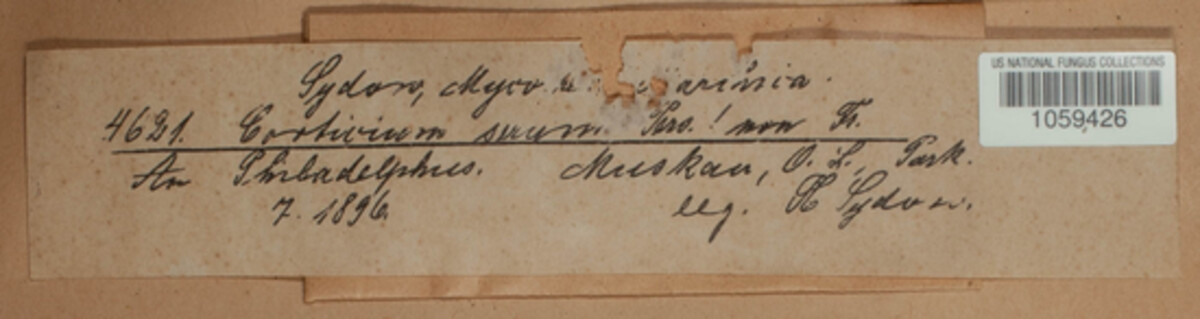 Sydow, Myco arinia.
4621. Corticium serum Pers.! non Fr.
An Philadelphus. Muskau, O. L., Park.
7. 1896. leg. H Sydow.
US NATIONAL FUNGUS COLLECTIONS
1059426